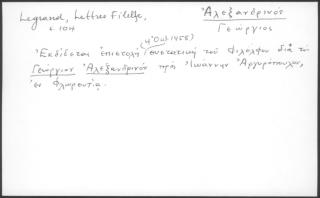 Legrand, Lettres Filelfe,
Ἀλεξανδρινός
Γεώργιος
(4 Oct 1455)
Ἐκδίδεται ἐπιστολὴ συστατικὴ τοῦ Φιλέλφου διὰ τὸν
Γεώργιον Ἀλεξανδρινὸν πρὸς Ἰωάννην Ἀργυρόπουλον,
ἐν Φλωρεντίᾳ.